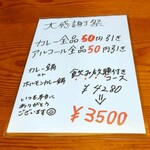 大感謝祭
カレー全品50円引き
アルコール全品50円引き
カレー鍋
or
ホルモンカレー鍋
飲み放題付き
コース
¥4280
¥3500
いつも本当に
ありがとう
ございます